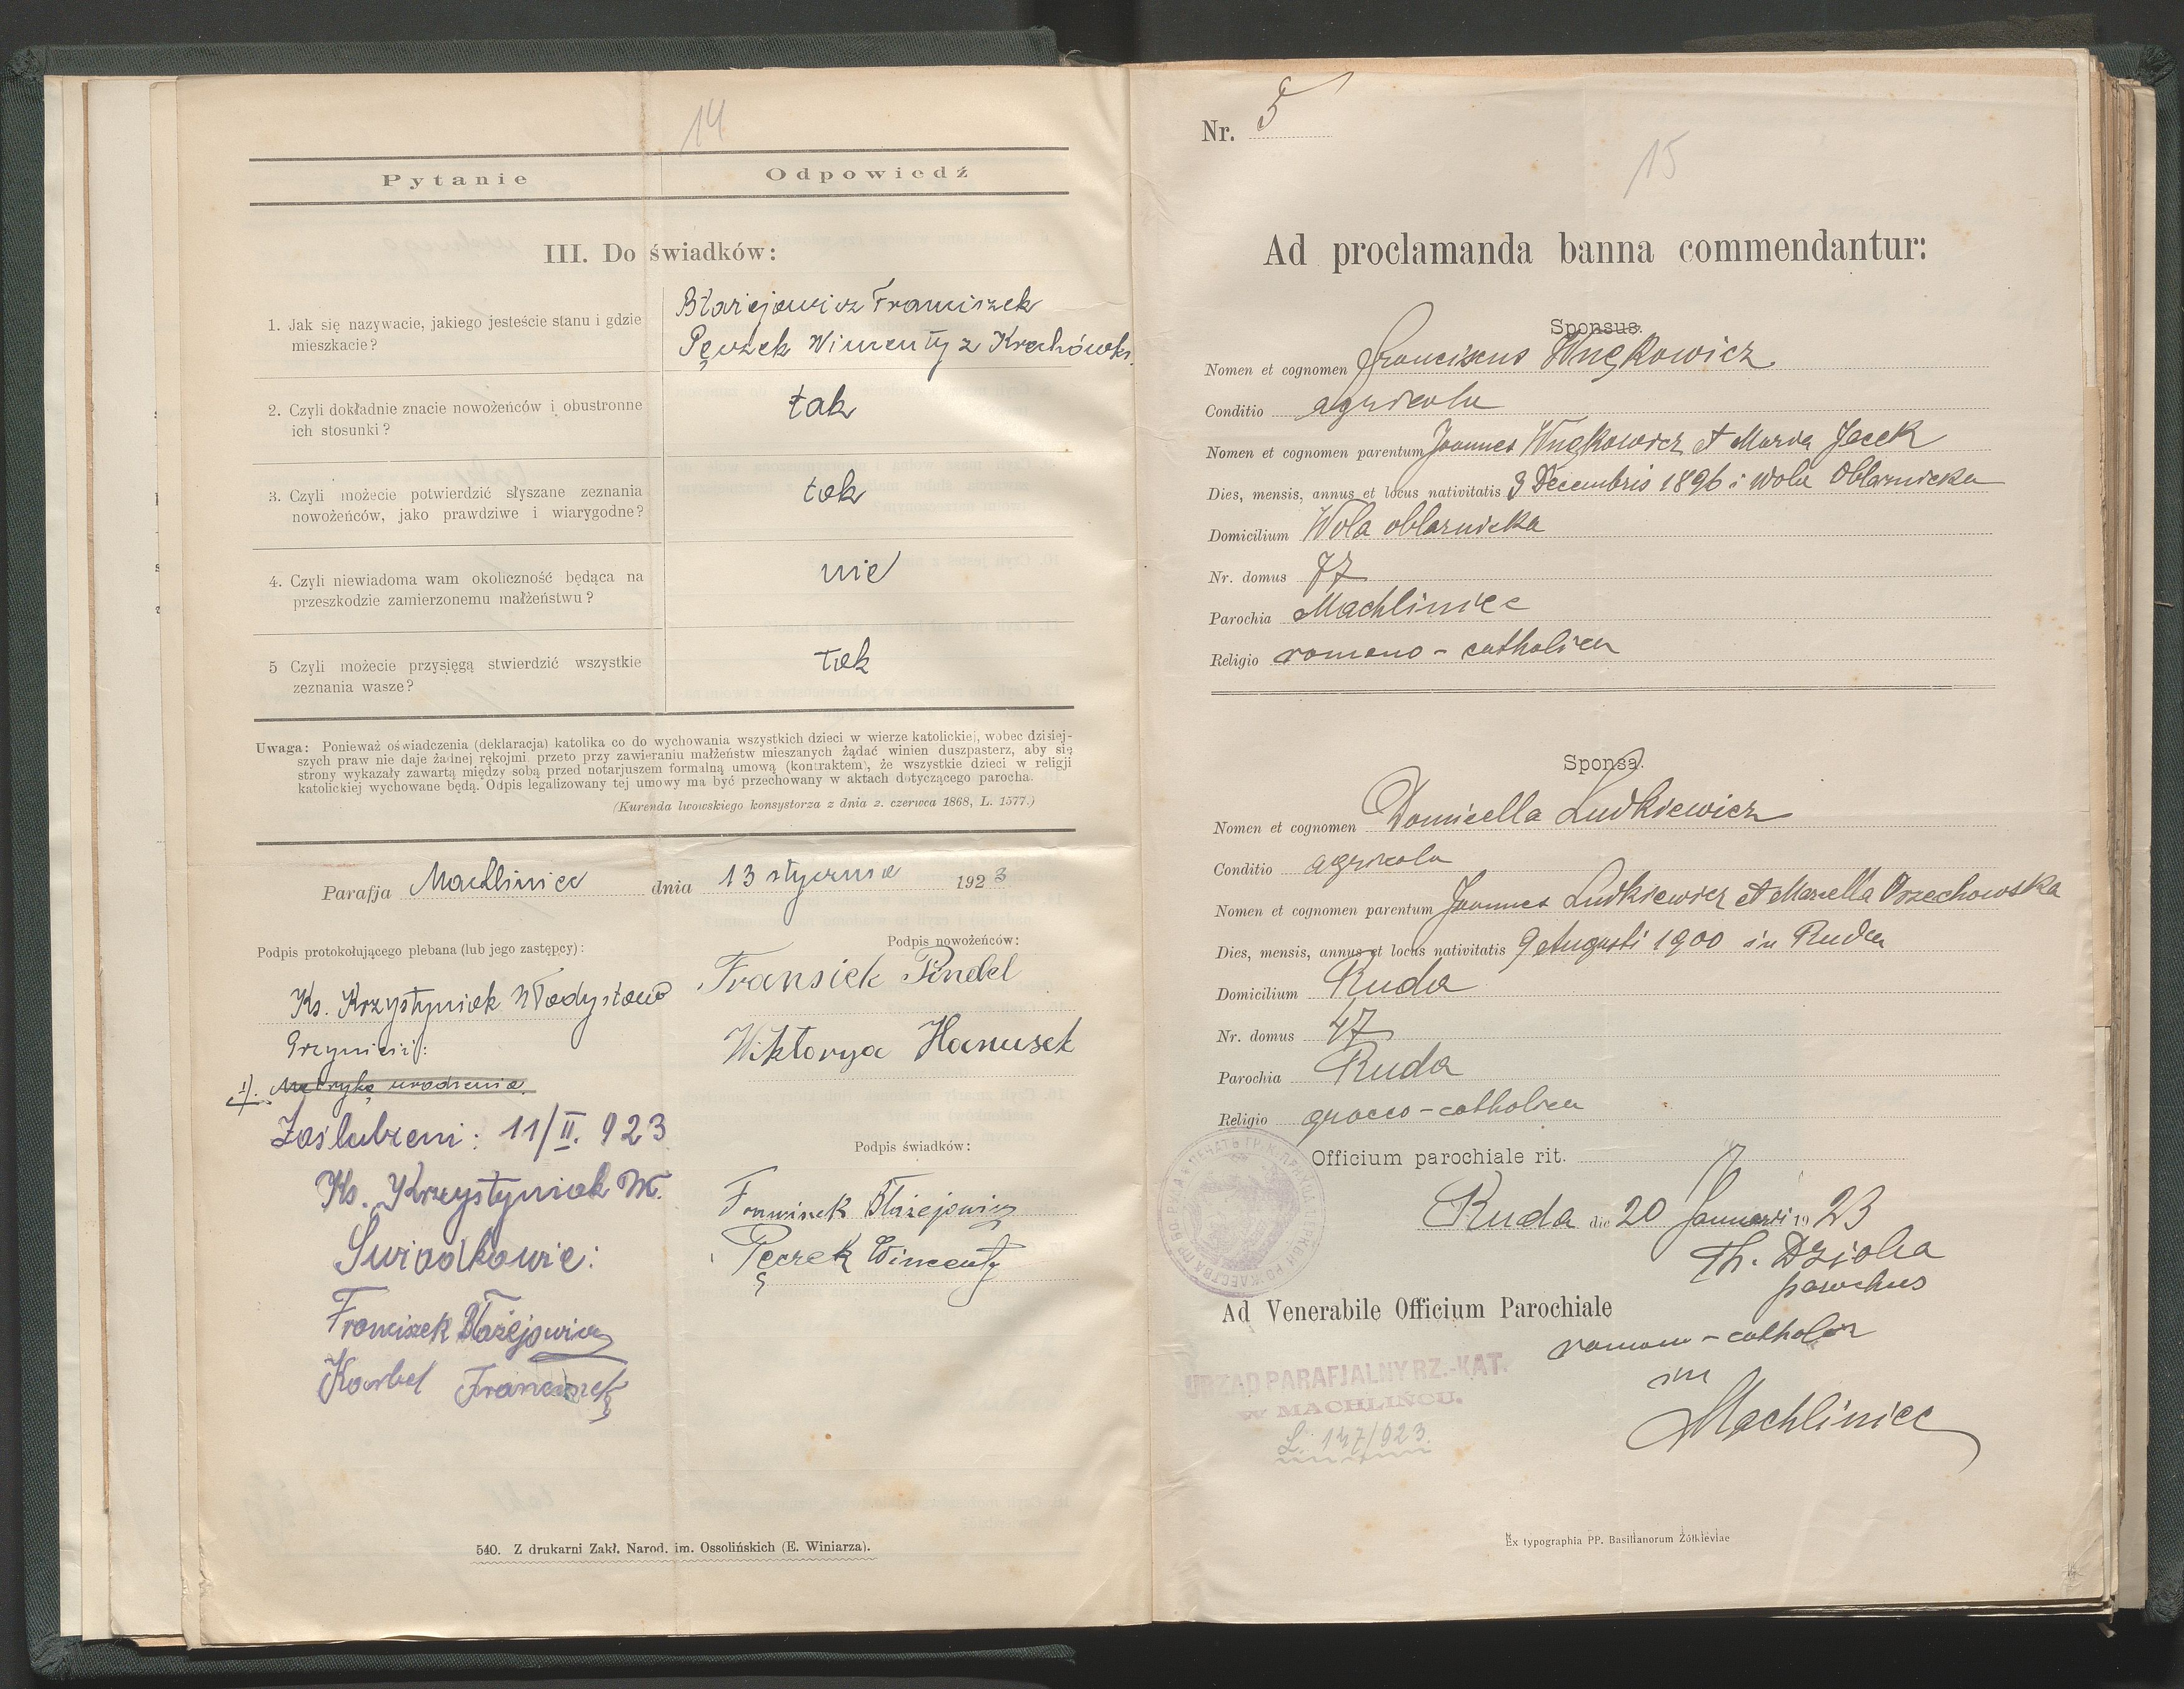 14
Pytanie
Odpowiedź
III. Do świadków:
1. Jak się nazywacie, jakiego jesteście stanu i gdzie
mieszkacie?
Błażejowicz Franciszek
Pęczek Wincenty z Krechówki
2. Czyli dokładnie znacie nowożeńców i obustronne
ich stosunki?
tak
3. Czyli możecie potwierdzić słyszane zeznania
nowożeńców, jako prawdziwe i wiarygodne?
tak
4. Czyli niewiadoma wam okoliczność będąca na
przeszkodzie zamierzonemu małżeństwu?
nie
5 Czyli możecie przysięgą stwierdzić wszystkie
zeznania wasze?
Tak
Uwaga: Ponieważ oświadczenia (deklaracja) katolika co do wychowania wszystkich dzieci w wierze katolickiej, wobec dzisiej-
szych praw nie daje żadnej rękojmi, przeto przy zawieraniu małżeństw mieszanych żądać winien duszpasterz, aby się
strony wykazały zawartą między sobą przed notarjuszem formalną umową (kontraktem), że wszystkie dzieci w religji
katolickiej wychowane będą. Odpis legalizowany tej umowy ma być przechowany w aktach dotyczącego parocha.
(Kurenda lwowskiego konsystorza z dnia 2. czerwca 1868, L. 1577.)
Parafja Machliniec dnia 13 stycznia 1923
Podpis protokołującego plebana (lub jego zastępcy):
Ks. Krzystyniak Władysław
1). Metrykę urodzenia.
Zaślubieni: 11/II. 923
Ks. Krzystyniak W.
Świadkowie:
Franciszek Błażejowicz
Korbel Franciszek
Podpis nowożeńców:
Fransiek Pindel
Wiktorya Hanusek
Podpis świadków:
Franciszek Błażejowicz
Pęczek Wincenty
540. Z drukarni Zakł. Narod. im. Ossolińskich (E. Winiarza).
Nr. 5
15
Ad proclamanda banna commendantur:
Sponsus.
Nomen et cognomen Franciscus Wnękowicz
Conditio agricola
Nomen et cognomen parentum Joannes Wnękowicz et Maria Jacek
Dies, mensis, annus et locus nativitatis 3 Decembris 1896 i Wola Oblaznicka
Domicilium Wola oblaznicka
Nr. domus 77
Parochia Machliniec
Religio romano-catholica
Sponsa.
Nomen et cognomen Domicella Ludkiewicz
Conditio agricola
Nomen et cognomen parentum Joannes Ludkiewicz et Marcella Orzechowska
Dies, mensis, annus et locus nativitatis 9 Augusti 1900 in Ruda
Domicilium Ruda
Nr. domus 47
Parochia Ruda
Religio graeco-catholica
Officium parochiale rit.
Ruda die 20 Januari 1923
Th. Dzioba
parochus
Ad Venerabile Officium Parochiale
romano-catholic
in
Machliniec
URZĄD PARAFJALNY RZ.-KAT.
W MACHLIŃCU.
L. 147/923.
Ex typographia PP. Basilianorum Żółkieviae